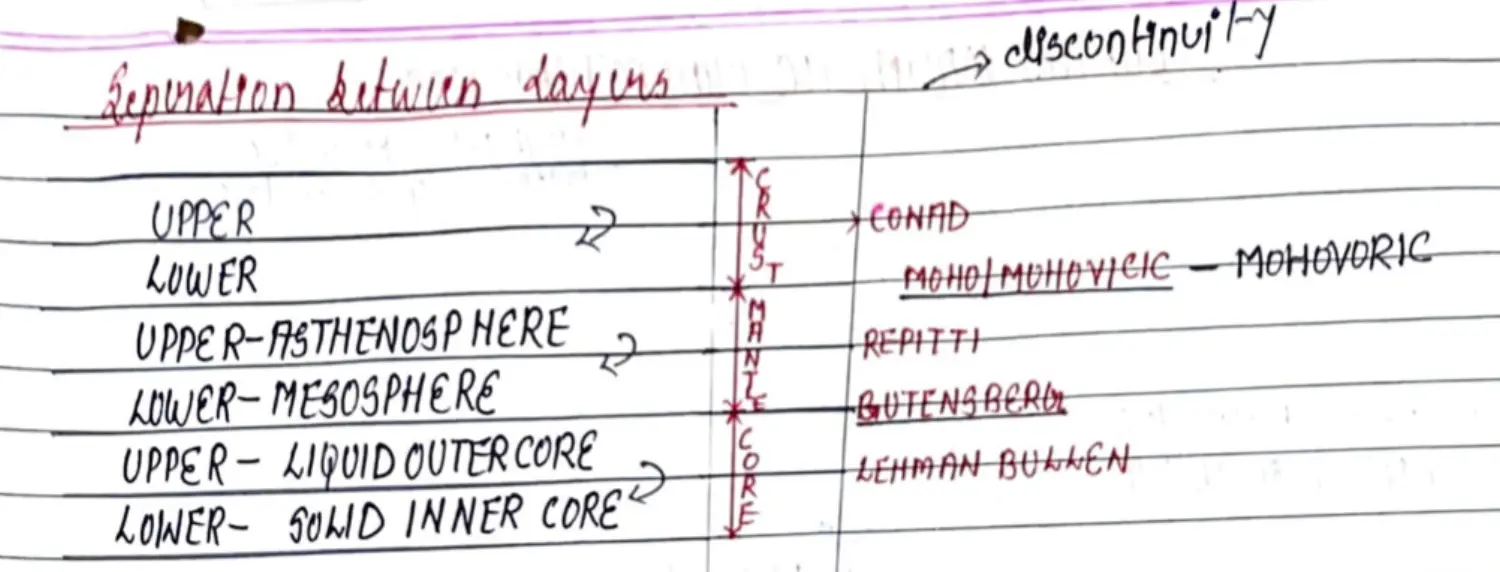 discontinuity
Seperation between Layers
UPPER CONAD
LOWER
CRUST
MOHO/MOHOVICIC - MOHOVORIC
UPPER-ASTHENOSPHERE REPITTI
LOWER-MESOSPHERE
MANTLE
GUTENSBERG
UPPER- LIQUID OUTER CORE LEHMAN BULLEN
LOWER- SOLID INNER CORE
CORE